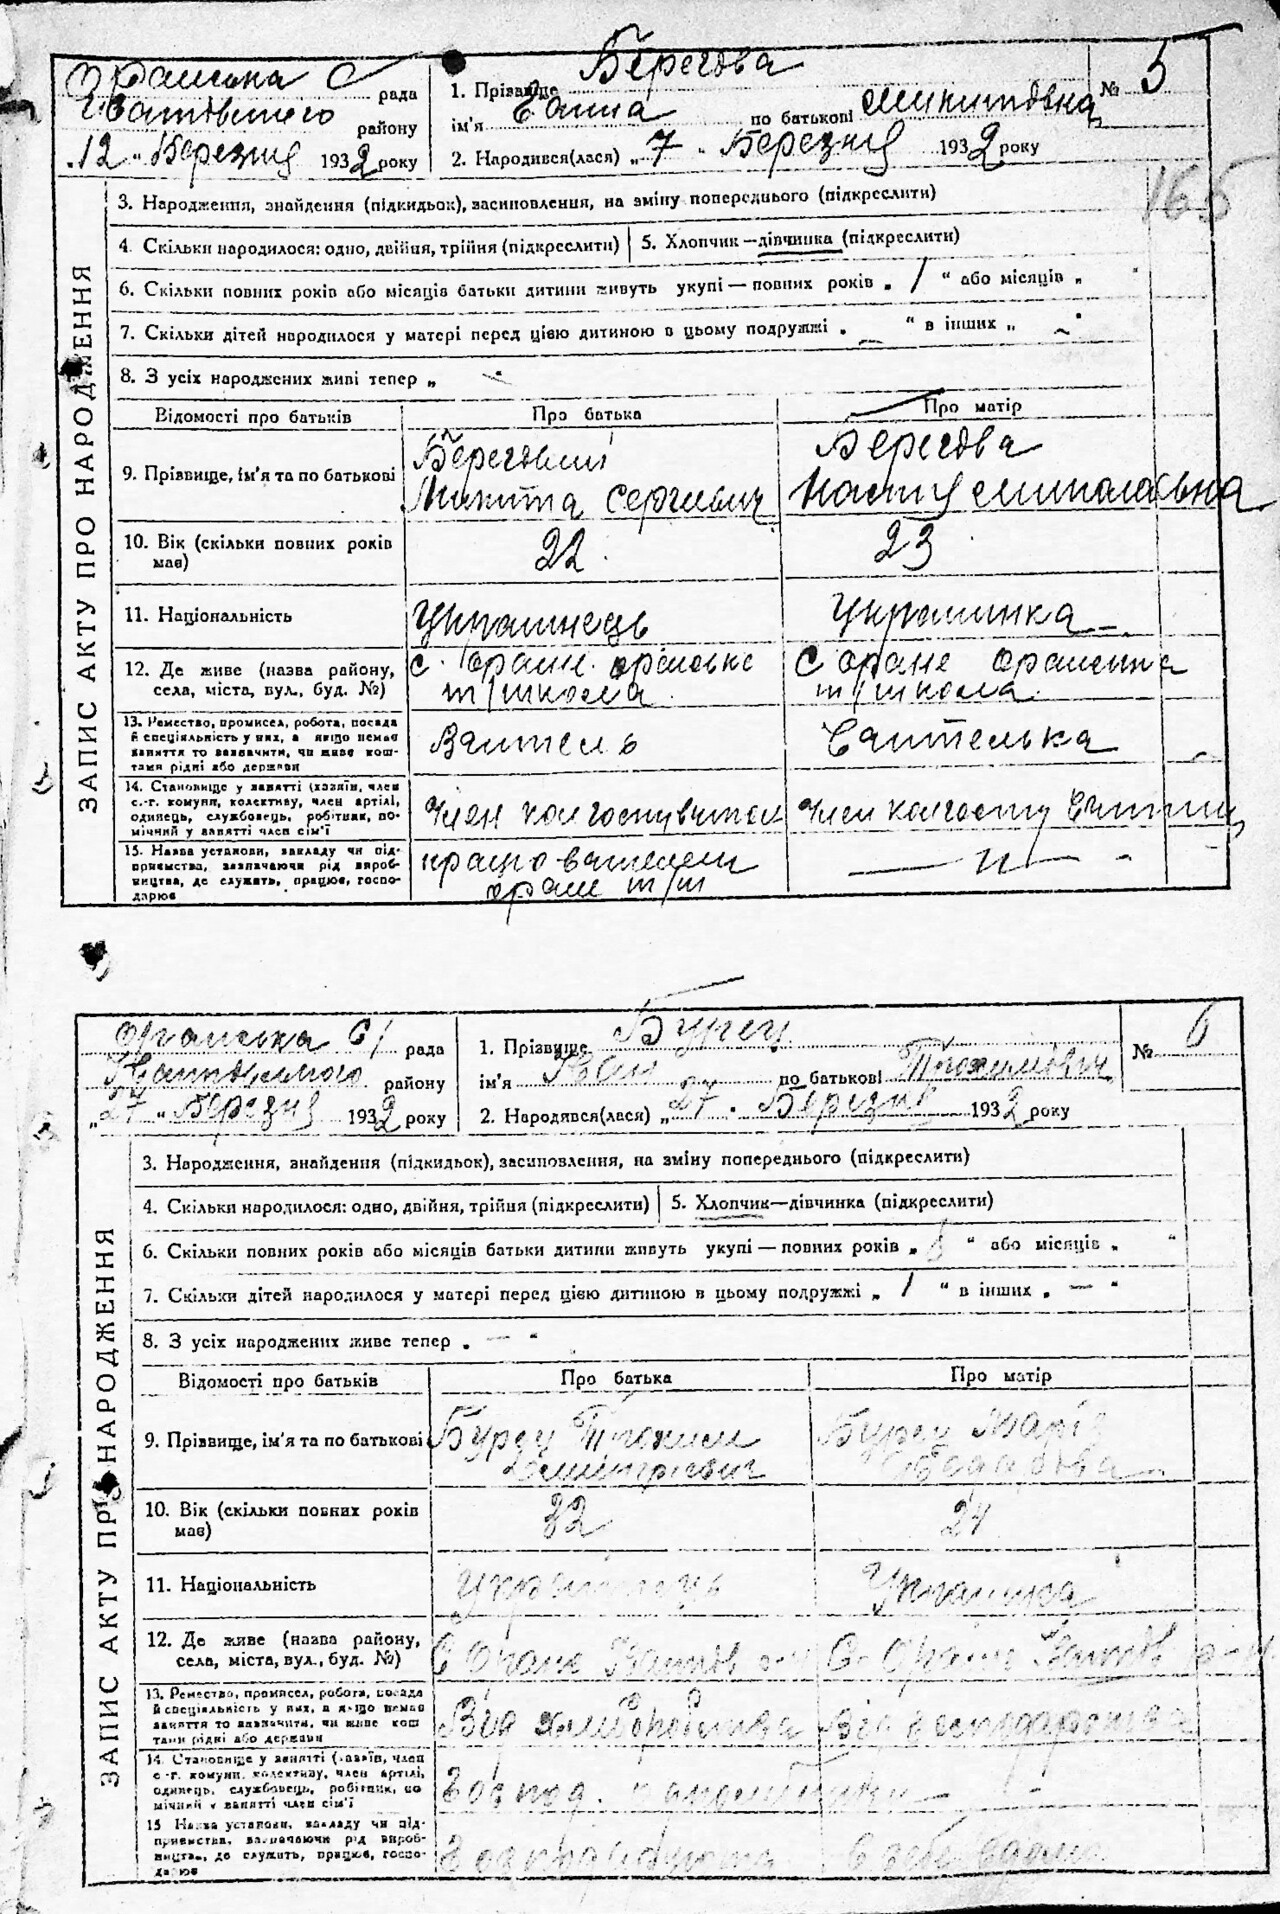 Оранська С рада
району
„12" Березня 1932 року
1. Прізвище Берегова
ім'я Ганна по батькові Микитовна
2. Народився(лася) „7" Березня 1932 року
№ 5
165
ЗАПИС АКТУ ПРО НАРОДЖЕННЯ
3. Народження, знайдення (підкидьок), засиновлення, на зміну попереднього (підкреслити)
4. Скільки народилося: одно, двійня, трійня (підкреслити) 5. Хлопчик—дівчинка (підкреслити)
6. Скільки повних років або місяців батьки дитини живуть укупі — повних років „ 1 " або місяців „ "
7. Скільки дітей народилося у матері перед цією дитиною в цьому подружжі „ — " в інших „ — "
8. З усіх народжених живі тепер „ — "
Відомості про батьків Про батька Про матір
9. Прізвище, ім'я та по батькові
Береговий
Микита Сергиевич
Берегова
Настя Миколаевна
10. Вік (скільки повних років має)
22
23
11. Національність
Українець
Украинка
12. Де живе (назва району, села, міста, вул., буд. №)
с. Оране Оранська
т/школа
с Оране Оранська
т/школа
13. Ремество, промисел, робота, посада
й спеціяльність у них, а якщо немає
заняття то зазначити, чи живе кош-
тами рідні або держави
Вчитель
Вчителька
14. Становище у занятті (хазяїн, член
с.-г. комуни, колективу, член артілі,
одинець, службовець, робітник, по-
мічний у занятті член сім'ї
Член колгоспу
Член колгоспу
15. Назва установи, закладу чи під-
приємства, зазначаючи рід вироб-
ництва, де служить, працює, госпо-
дарює
працю вчителем
оране т/ш
— „ —
Оранська С/ рада
району
„27" Березня 1932 року
1. Прізвище Бурец
ім'я Іван по батькові Трохимович
2. Народився(лася) „27" Березня 1932 року
№ 6
ЗАПИС АКТУ ПРО НАРОДЖЕННЯ
3. Народження, знайдення (підкидьок), засиновлення, на зміну попереднього (підкреслити)
4. Скільки народилося: одно, двійня, трійня (підкреслити) 5. Хлопчик—дівчинка (підкреслити)
6. Скільки повних років або місяців батьки дитини живуть укупі — повних років „ 6 " або місяців „ "
7. Скільки дітей народилося у матері перед цією дитиною в цьому подружжі „ 1 " в інших „ — "
8. З усіх народжених живе тепер „ — "
Відомості про батьків Про батька Про матір
9. Прізвище, ім'я та по батькові
Бурец Трохим
Дмитрієвич
Бурец Марія
10. Вік (скільки повних років має)
32
24
11. Національність
Українець
Украинка
12. Де живе (назва району, села, міста, вул., буд. №)
С Оране
С. Оране
13. Ремество, промисел, робота, посада
й спеціяльність у них, а якщо немає
заняття то зазначити, чи живе кош-
тами рідні або держави
Від хліборобства
Від господарства
14. Становище у занятті (хазяїн, член
с.-г. комуни, колективу, член артілі,
одинець, службовець, робітник, по-
мічний у занятті член сім'ї
Господ.
15 Назва установи, закладу чи під-
приємства, зазначаючи рід вироб-
ництва, де служить, працює, госпо-
дарює
В себе вдома